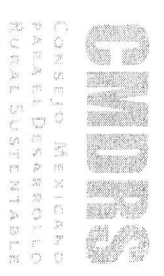 CMDRS
CONSEJO MEXICANO
PARA EL DESARROLLO
RURAL SUSTENTABLE